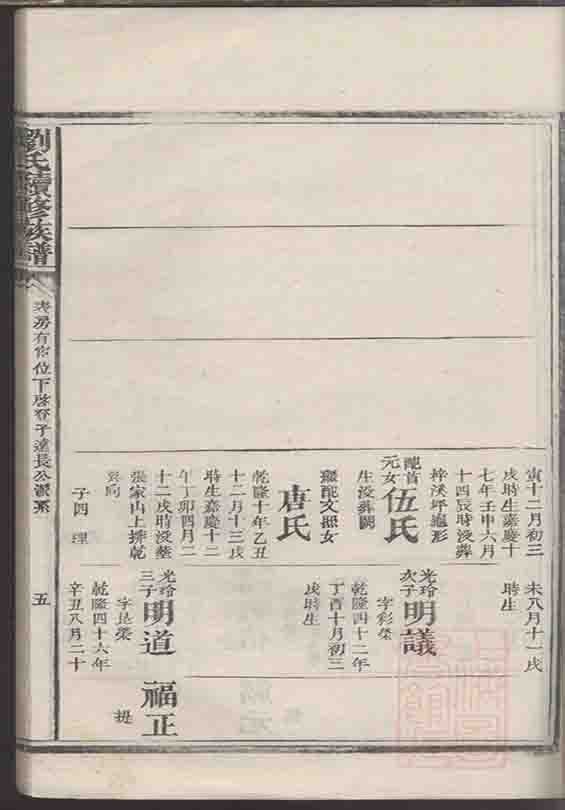 寅十二月初三
戌時生嘉慶十
七年壬申六月
十四辰時沒葬
梓溪坪龜形
配首
元女
伍氏
生沒葬闕
繼配文照女
唐氏
乾隆十年乙丑
十二月十三戌
時生嘉慶十二
年丁卯四月二
十二戌時沒葬
張家山上排乾
巽向
子四
理
未八月十一戌
時生
光玲
次子
明議
字彩榮
乾隆四十二年
丁酉十月初三
戌時生
光玲
三子
明道
福正
字昆榮
提
乾隆四十六年
辛丑八月二十
劉氏續修族譜
位下啓登子達長公
五